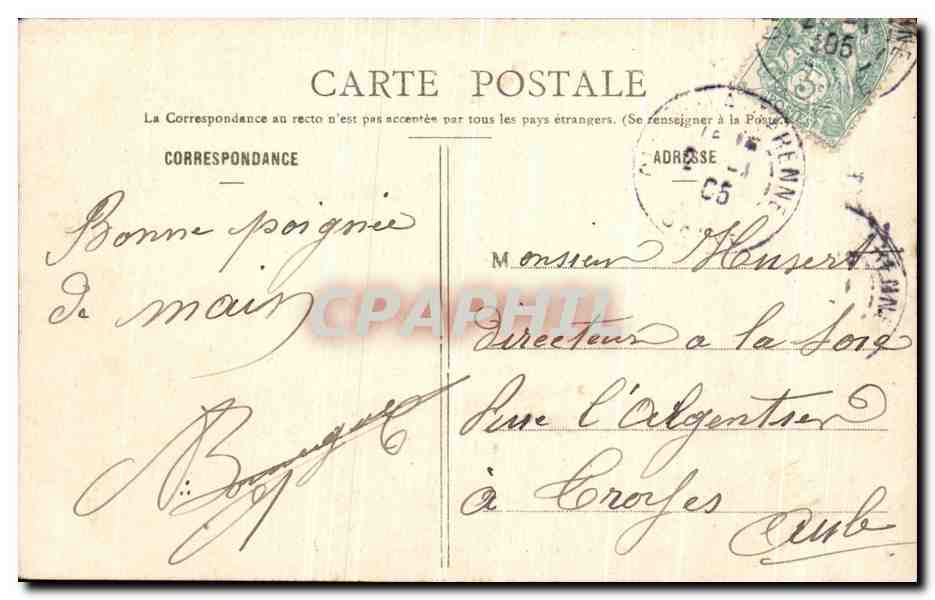 CARTE POSTALE
La Correspondance au recto n'est pas acceptée par tous les pays étrangers. (Se renseigner à la Poste.)
CORRESPONDANCE
ADRESSE
Bonne poignée
de main
Monsieur Husert
directeur a la Soie
à Troyes
Aube
05
CPAPHIL